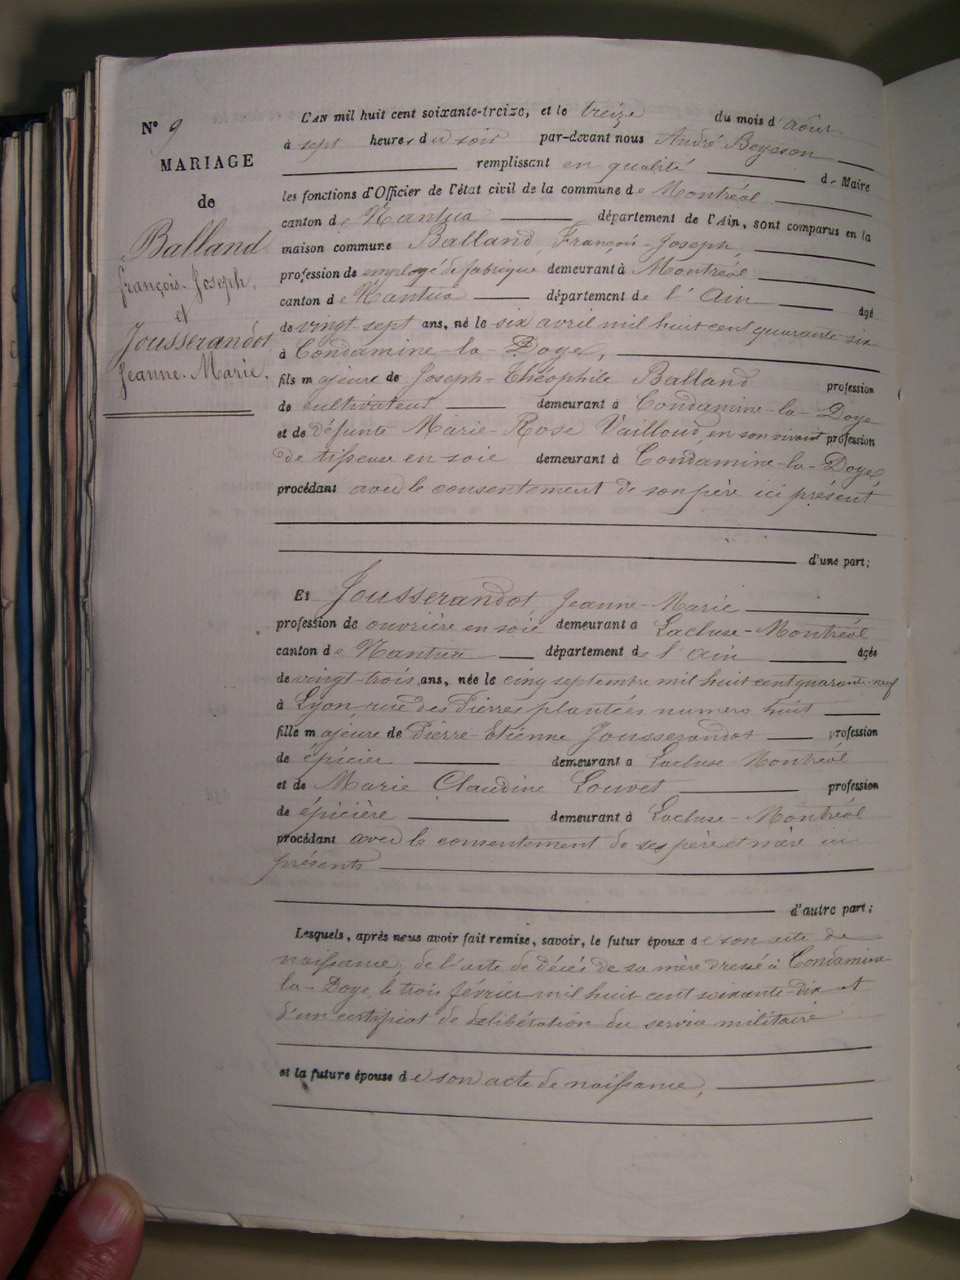 N° 9
MARIAGE
de
Balland
françois-Joseph.
et
Jousserandot
Jeanne-Marie.
L'AN mil huit cent soixante-treize, et le treize du mois d'août
à sept heures du soir par-devant nous André
remplissant en qualité de Maire
les fonctions d'Officier de l'état civil de la commune de Montréal
canton de Nantua département de l'Ain, sont comparus en la
maison commune Balland, François-Joseph,
profession de employé de fabrique demeurant à Montréal
canton de Nantua département de l'Ain âgé
de vingt-sept ans, né le six avril mil huit cent quarante-six
à Condamine-la-Doye,
fils majeur de Joseph-Théophile Balland profession
de cultivateur demeurant à Condamine-la-Doye
et de défunte Marie-Rose Vailloud en son vivant profession
de tisseuse en soie demeurant à Condamine-la-Doye,
procédant avec le consentement de son père ici présent
d'une part;
Et Jousserandot Jeanne-Marie
profession de ouvrière en soie demeurant à Lacluse-Montréal
canton de Nantua département de l'Ain âgée
de vingt-trois ans, née le cinq septembre mil huit cent quarante-neuf
à Lyon rue des Pierres plantées numéro huit
fille majeure de Pierre-Etienne Jousserandot profession
de épicier demeurant à Lacluse-Montréal
et de Marie Claudine Louvet profession
de épicière demeurant à Lacluse-Montréal
procédant avec le consentement de ses père et mère ici
présents
d'autre part;
Lesquels, après nous avoir fait remise, savoir, le futur époux de son acte de
naissance, de l'acte de décès de sa mère dressé à Condamine-
la-Doye, le trois février mil huit cent soixante-dix et
d'un certificat de délibération du service militaire
et la future épouse de son acte de naissance,